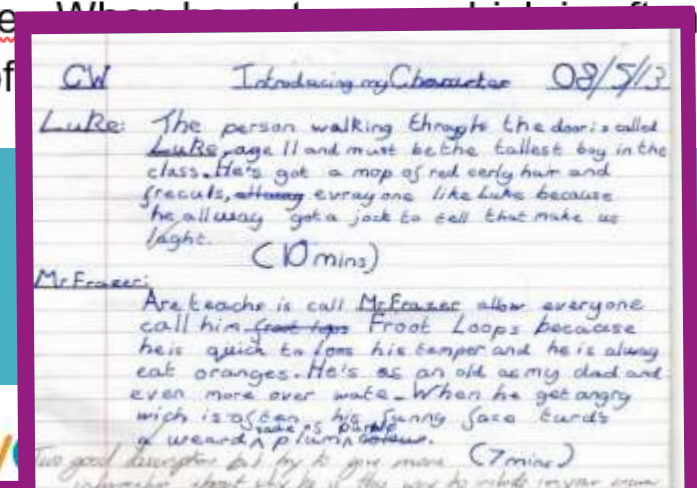 CW Introducing my Character 08/5/13
Luke: The person walking throght the door is called
Luke, age 11 and must be the tallest boy in the
class. He's got a mop of red cerly hair and
freculs, evrayone like Luke because
he allway got a jock to tell that make us
laght.
(10 mins)
Mr Frazer:
Are teachr is call Mr Frazer allow everyone
call him Froot Loops because
he is quich to loos his temper and he is alway
eat oranges. He's as an old as my dad and
even more over wate. When he get angry
wich is often his funny face turds
a weard plum
(7 mins)
Two good description but try to give more
information about why he is this way to include in your